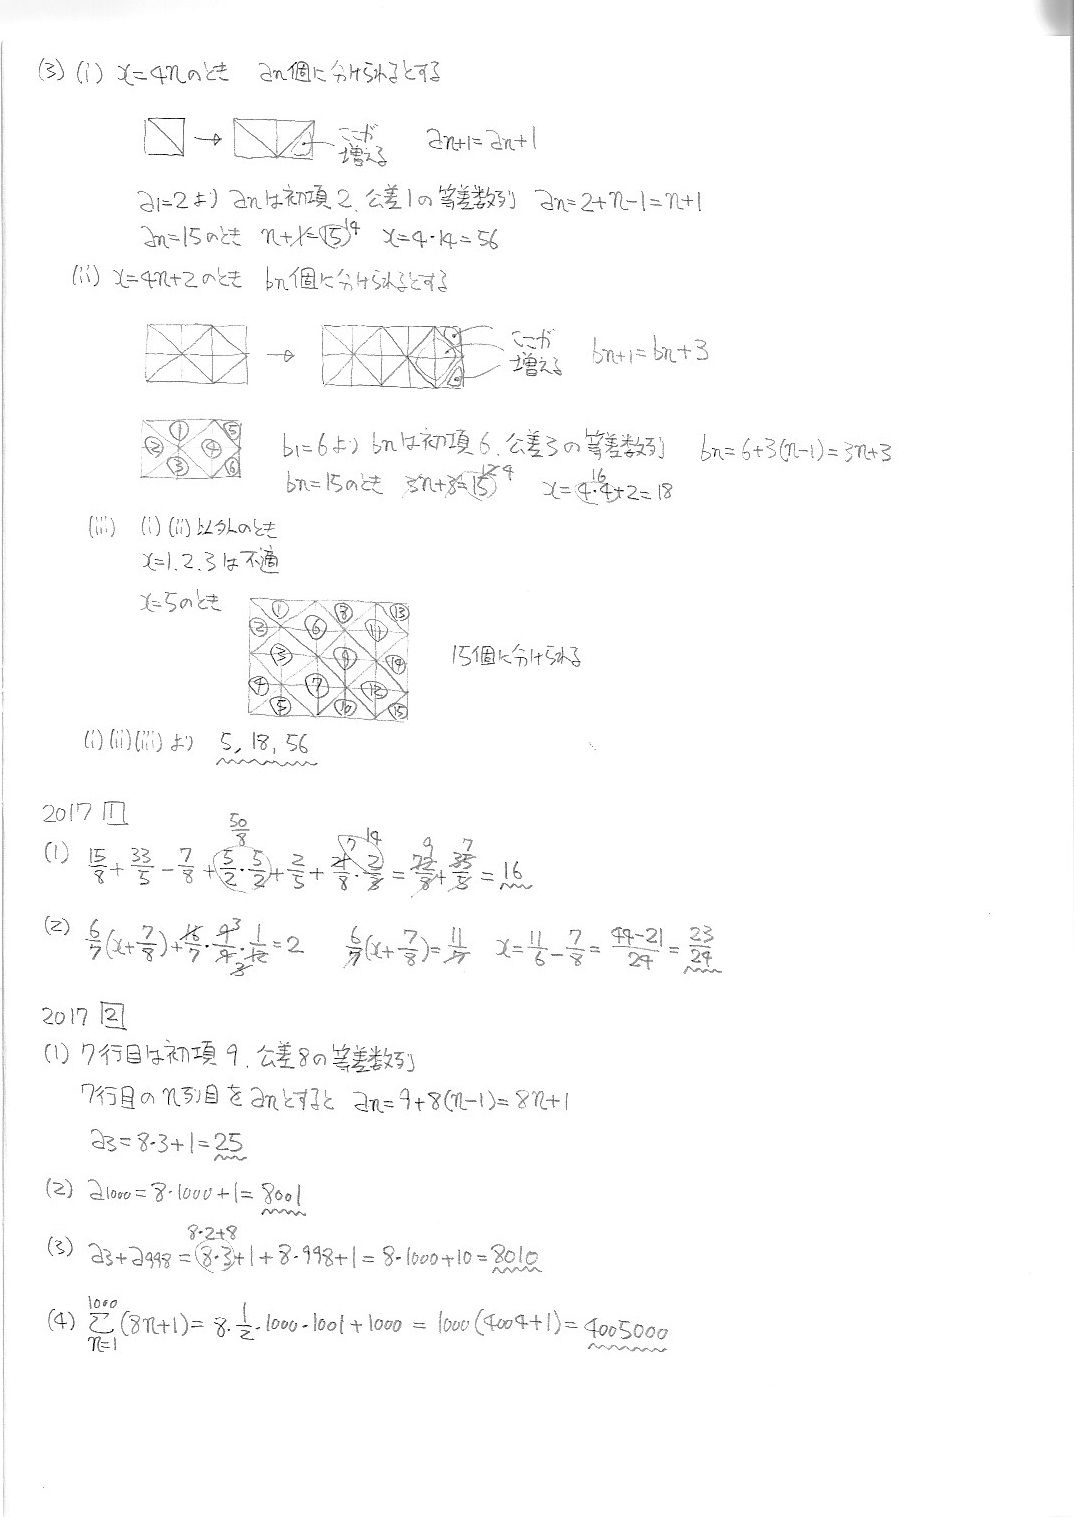 (3) (i) x=4nのとき an個に分けられるとする
ここが
増える
an+1=an+1
a1=2より anは初項2、公差1の等差数列 an=2+n-1=n+1
an=15のとき n+1=15 14 x=4・14=56
(ii) x=4n+2のとき bn個に分けられるとする
ここが
増える
bn+1=bn+3
① ② ③ ④ ⑤ ⑥
b1=6より bnは初項6、公差3の等差数列 bn=6+3(n-1)=3n+3
bn=15のとき 3n+3=15 12 4 x=4・4+2=18 16
(iii) (i)(ii)以外のとき
x=1.2.3は不適
x=5のとき
① ② ③ ④ ⑤ ⑥ ⑦ ⑧ ⑨ ⑩ ⑪ ⑫ ⑬ ⑭ ⑮
15個に分けられる
(i)(ii)(iii)より 5, 18, 56
2017 1
(1) 15/8+33/5-7/8+5/2・5/2+2/5+21/8・2/3=72/8+35/5=16
50/8 7 14 9 7
(2) 6/7(x+7/8)+16/7・9/4・1/12=2 6/7(x+7/8)=11/7 x=11/6-7/8=44-21/24=23/24
2017 2
(1) 7行目は初項9、公差8の等差数列
7行目のn列目をanとすると an=9+8(n-1)=8n+1
a3=8・3+1=25
(2) a1000=8・1000+1=8001
8・2+8
(3) a3+a998=8・3+1+8・998+1=8・1000+10=8010
(4) 1000 Σ n=1 (8n+1)=8・1/2・1000・1001+1000=1000(4004+1)=4005000